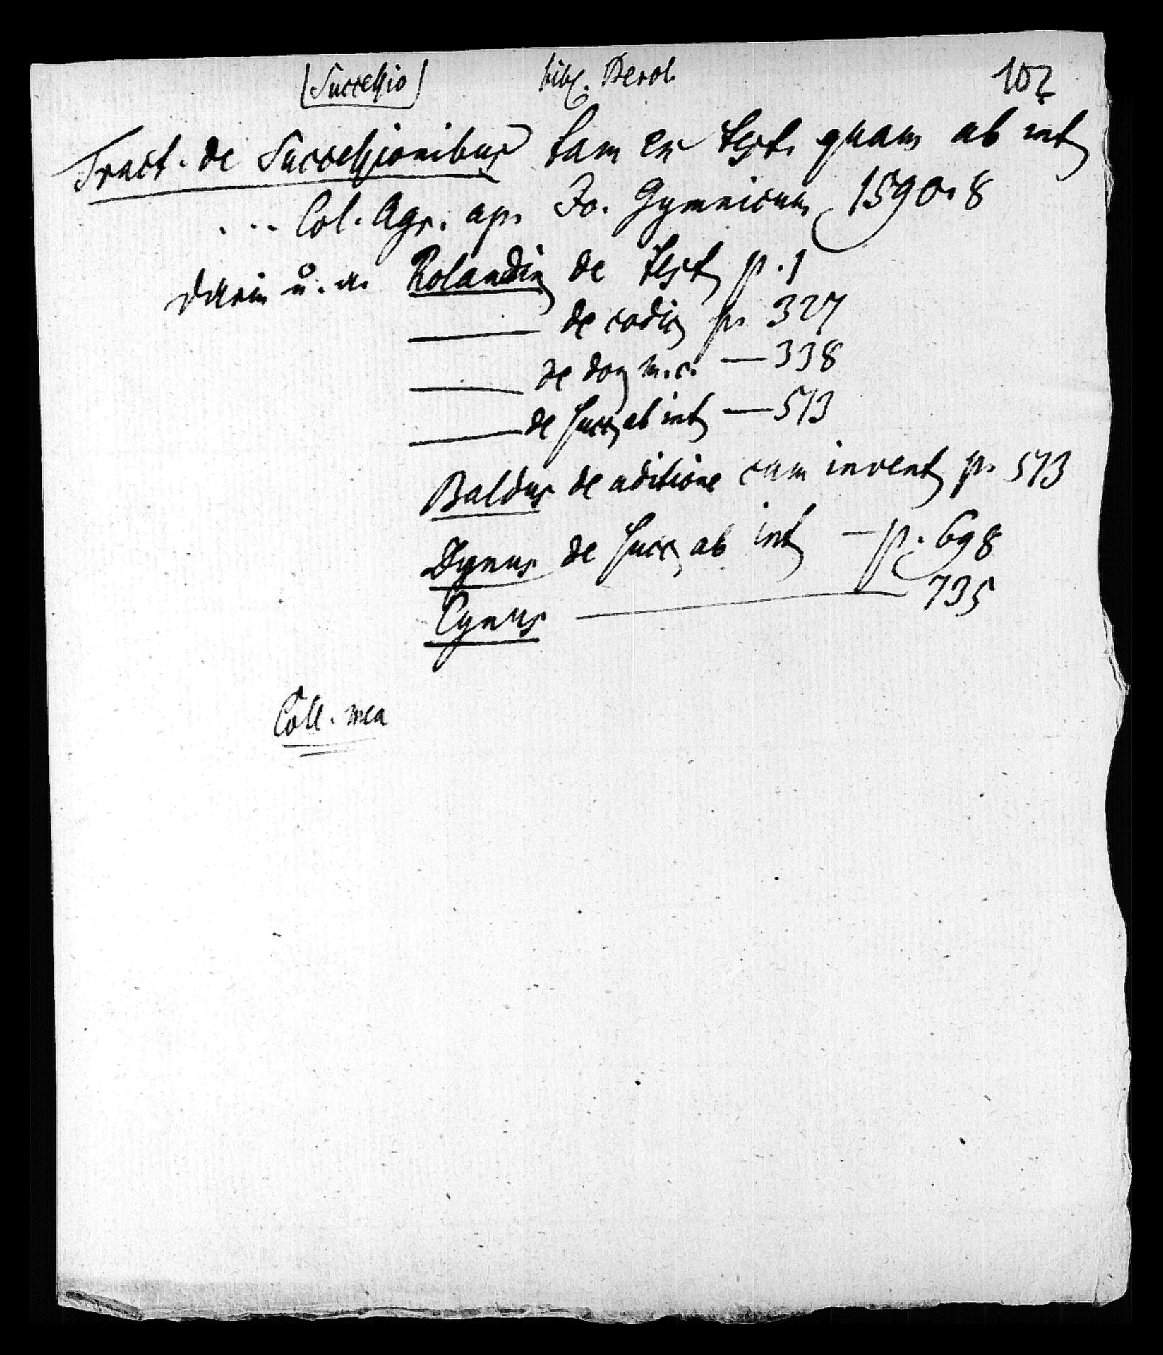 [Successio] bibl. Berol. 102
Tract. de Successionibus tam ex test. quam ab int
... Col. Agr. ap. Jo. Gymnicum 1590. 8
darin u. a. Rolandin de test p. 1
——— de codic p. 327
——— de don m. c. — 338
——— de succ ab int — 513
Baldus de aditione cum invent p. 573
Dynus de succ ab int — p. 698
Cynus ——— 735
Coll. mea